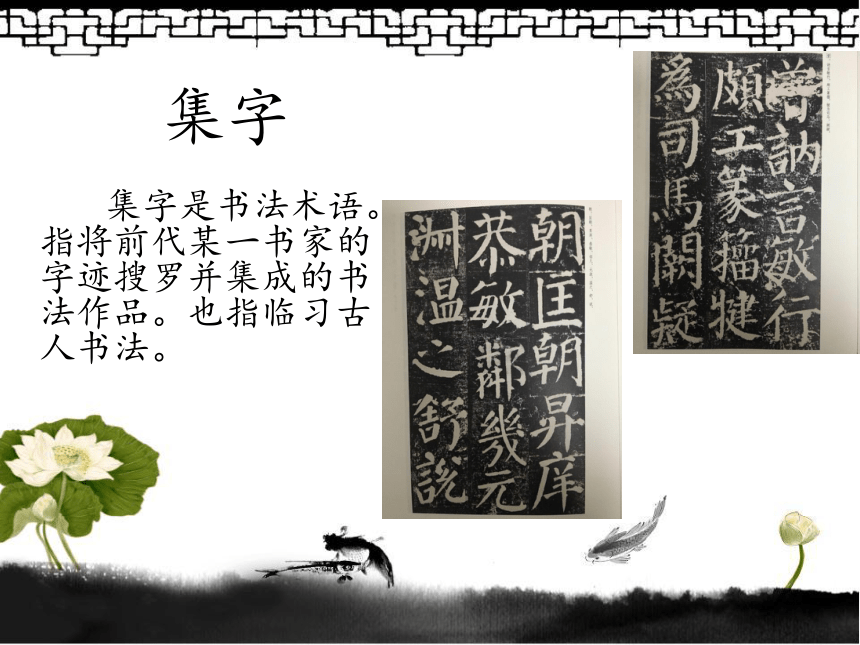 集字
集字是书法术语。
指将前代某一书家的
字迹搜罗并集成的书
法作品。也指临习古
人书法。
朝匡朝昇庠
恭敏鄰幾元
淵温之舒説
曾訥言敏行
頗工篆籀犍
爲司馬闕疑